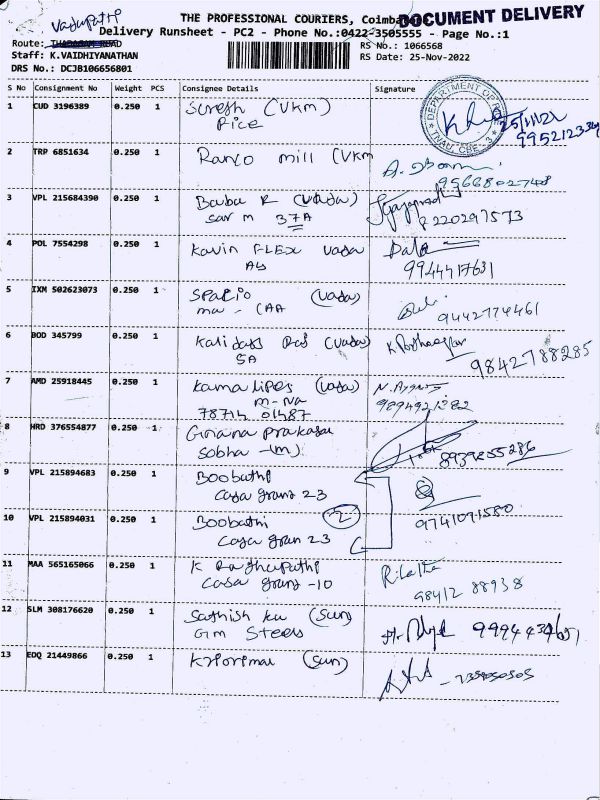 Vadupathi
THE PROFESSIONAL COURIERS, Coimba
DOCUMENT DELIVERY
Delivery Runsheet - PC2 - Phone No.:0422-3505555 - Page No.:1
Route: THADAGAM ROAD
RS No.: 1066568
Staff: K.VAIDHIYANATHAN
RS Date: 25-Nov-2022
DRS No.: DCJB106656801
S No Consignment No Weight PCS Consignee Details Signature
1 CUD 3196389 0.250 1 Suresh (VKM)
Rice
DEPARTMENT OF
25/11/22
2 TRP 6851634 0.250 1 Ranco mill (VKM
3 VPL 215684390 0.250 1 Babu R (vada)
Sar m 37A
8220297573
4 POL 7554298 0.250 1 Kavin FLEX vada
9944417631
5 IXM 502623073 0.250 1 (vada)
9442774461
6 BOD 345799 0.250 1 Kalidass Raj (vada)
5A
9842788285
7 AMD 25918445 0.250 1 (vada)
78714 01487
9894921282
8 HRD 376554877 0.250 1 Gnana prakasa
Sobha -(m)
8939855286
9 VPL 215894683 0.250 1 Boobathi
Casa grand 23
10 VPL 215894031 0.250 1 Boobathi 2
Casa gran 23
9741091580
11 MAA 565165066 0.250 1 K Raghupathi
Casa grang -10
98412 88938
12 SLM 308176620 0.250 1 Sathish Ku (Sun)
Gm Steels
13 EDQ 21449866 0.250 1 (Sun)